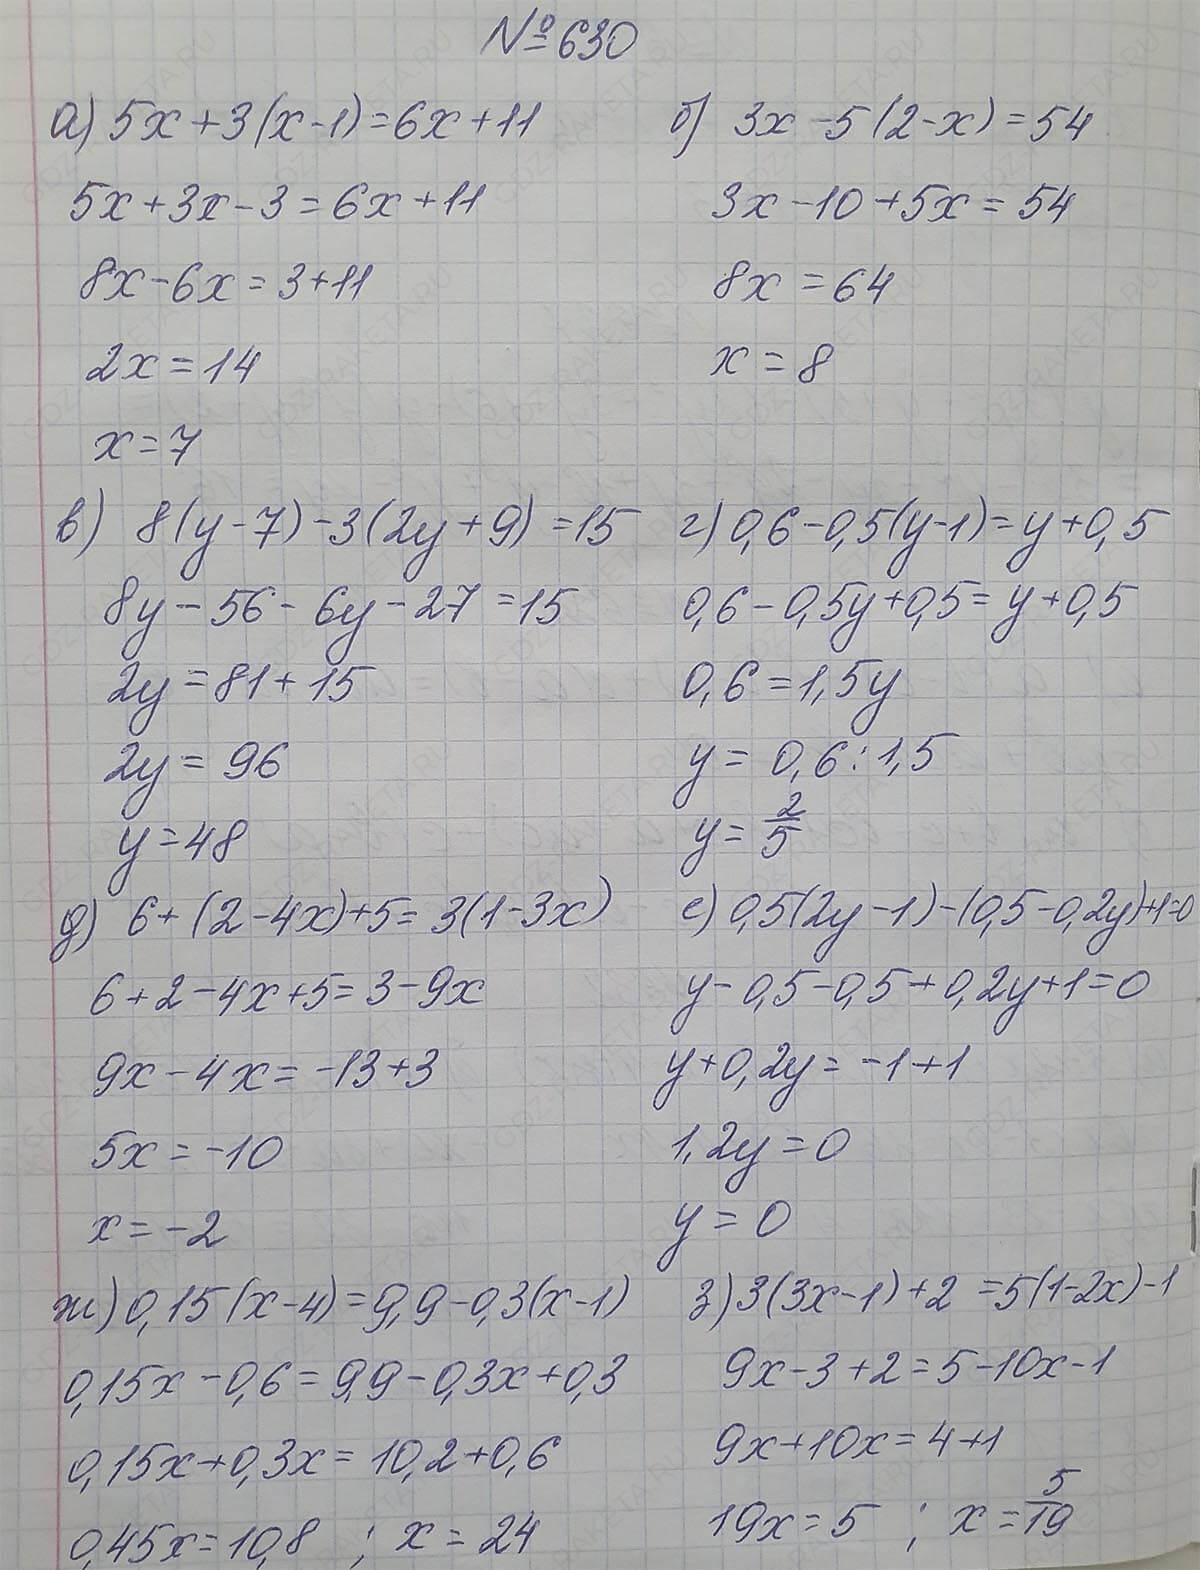 №630
а) 5x+3(x-1)=6x+11
5x+3x-3=6x+11
8x-6x=3+11
2x=14
x=7
б) 3x-5(2-x)=54
3x-10+5x=54
8x=64
x=8
в) 8(y-7)-3(2y+9)=15
8y-56-6y-27=15
2y=81+15
2y=96
y=48
г) 0,6-0,5(y-1)=y+0,5
0,6-0,5y+0,5=y+0,5
0,6=1,5y
y=0,6:1,5
y=2/5
д) 6+(2-4x)+5=3(1-3x)
6+2-4x+5=3-9x
9x-4x=-13+3
5x=-10
x=-2
е) 0,5(2y-1)-(0,5-0,2y)+1=0
y-0,5-0,5+0,2y+1=0
y+0,2y=-1+1
1,2y=0
y=0
ж) 0,15(x-4)=9,9-0,3(x-1)
0,15x-0,6=9,9-0,3x+0,3
0,15x+0,3x=10,2+0,6
0,45x=10,8 ; x=24
з) 3(3x-1)+2=5(1-2x)-1
9x-3+2=5-10x-1
9x+10x=4+1
19x=5 ; x=5/19